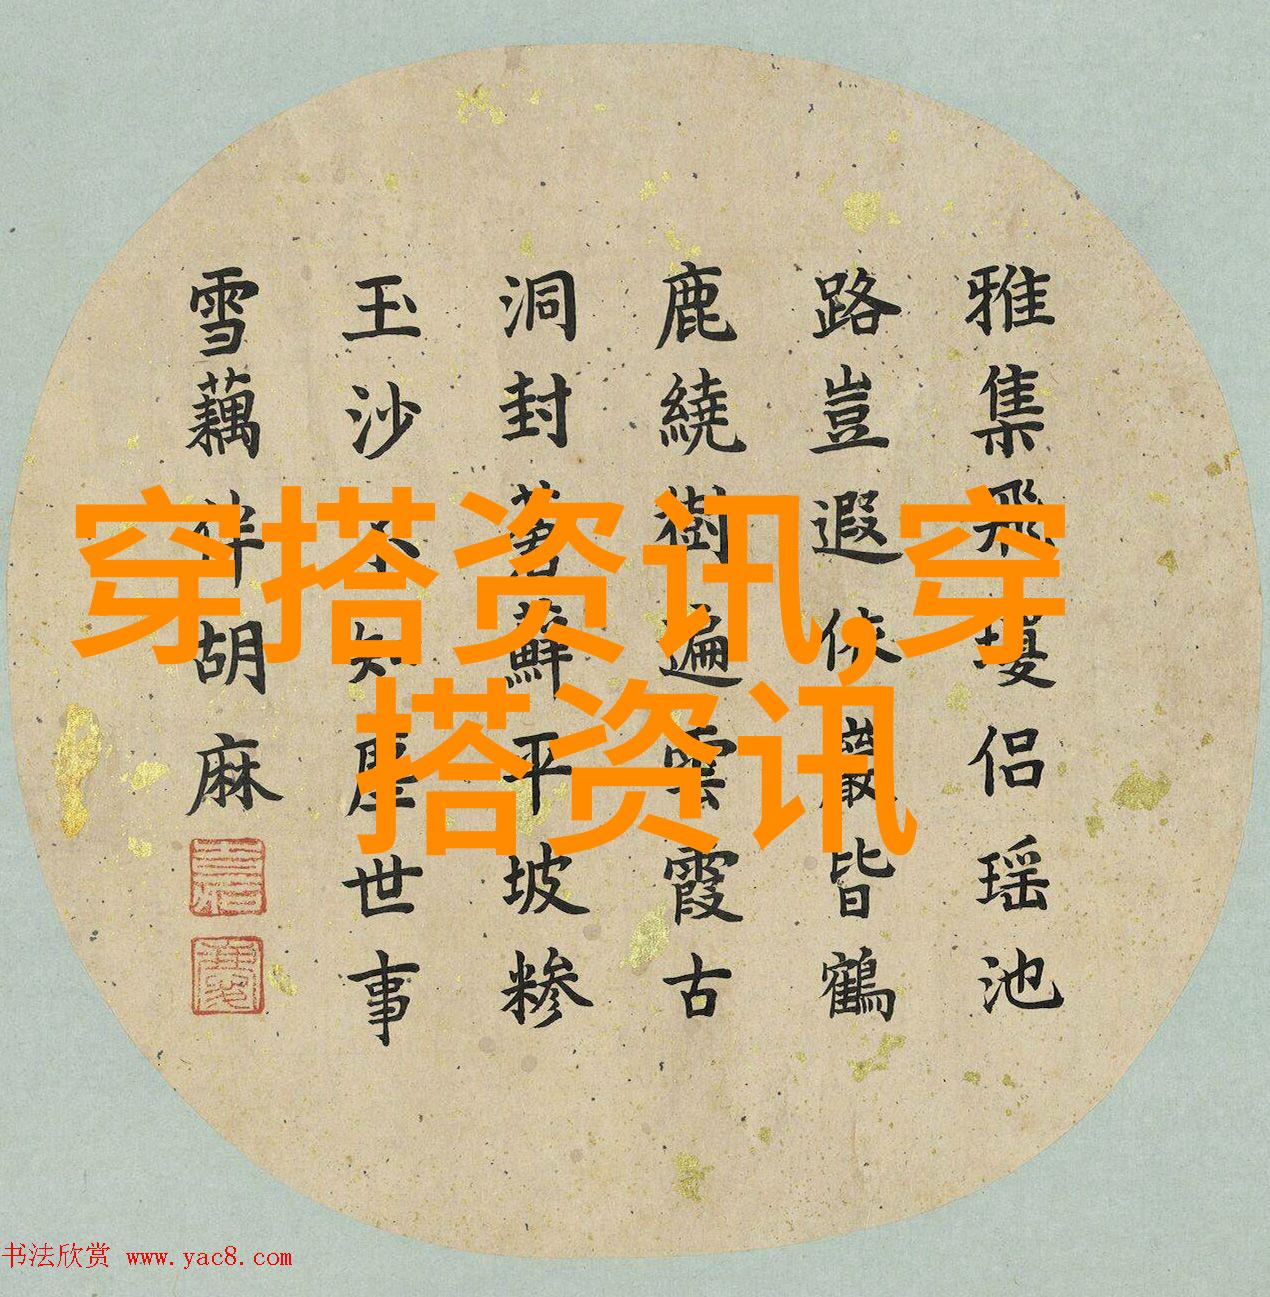 雅集飛瓊侣瑶池
路豈遐依巖皆鶴
鹿繞樹遍雲霞古
洞封苔蘚平坡糁
玉沙不知塵世事
雪藕伴胡麻
穿搭资讯,穿
搭资讯
书法欣赏 www.yac8.com